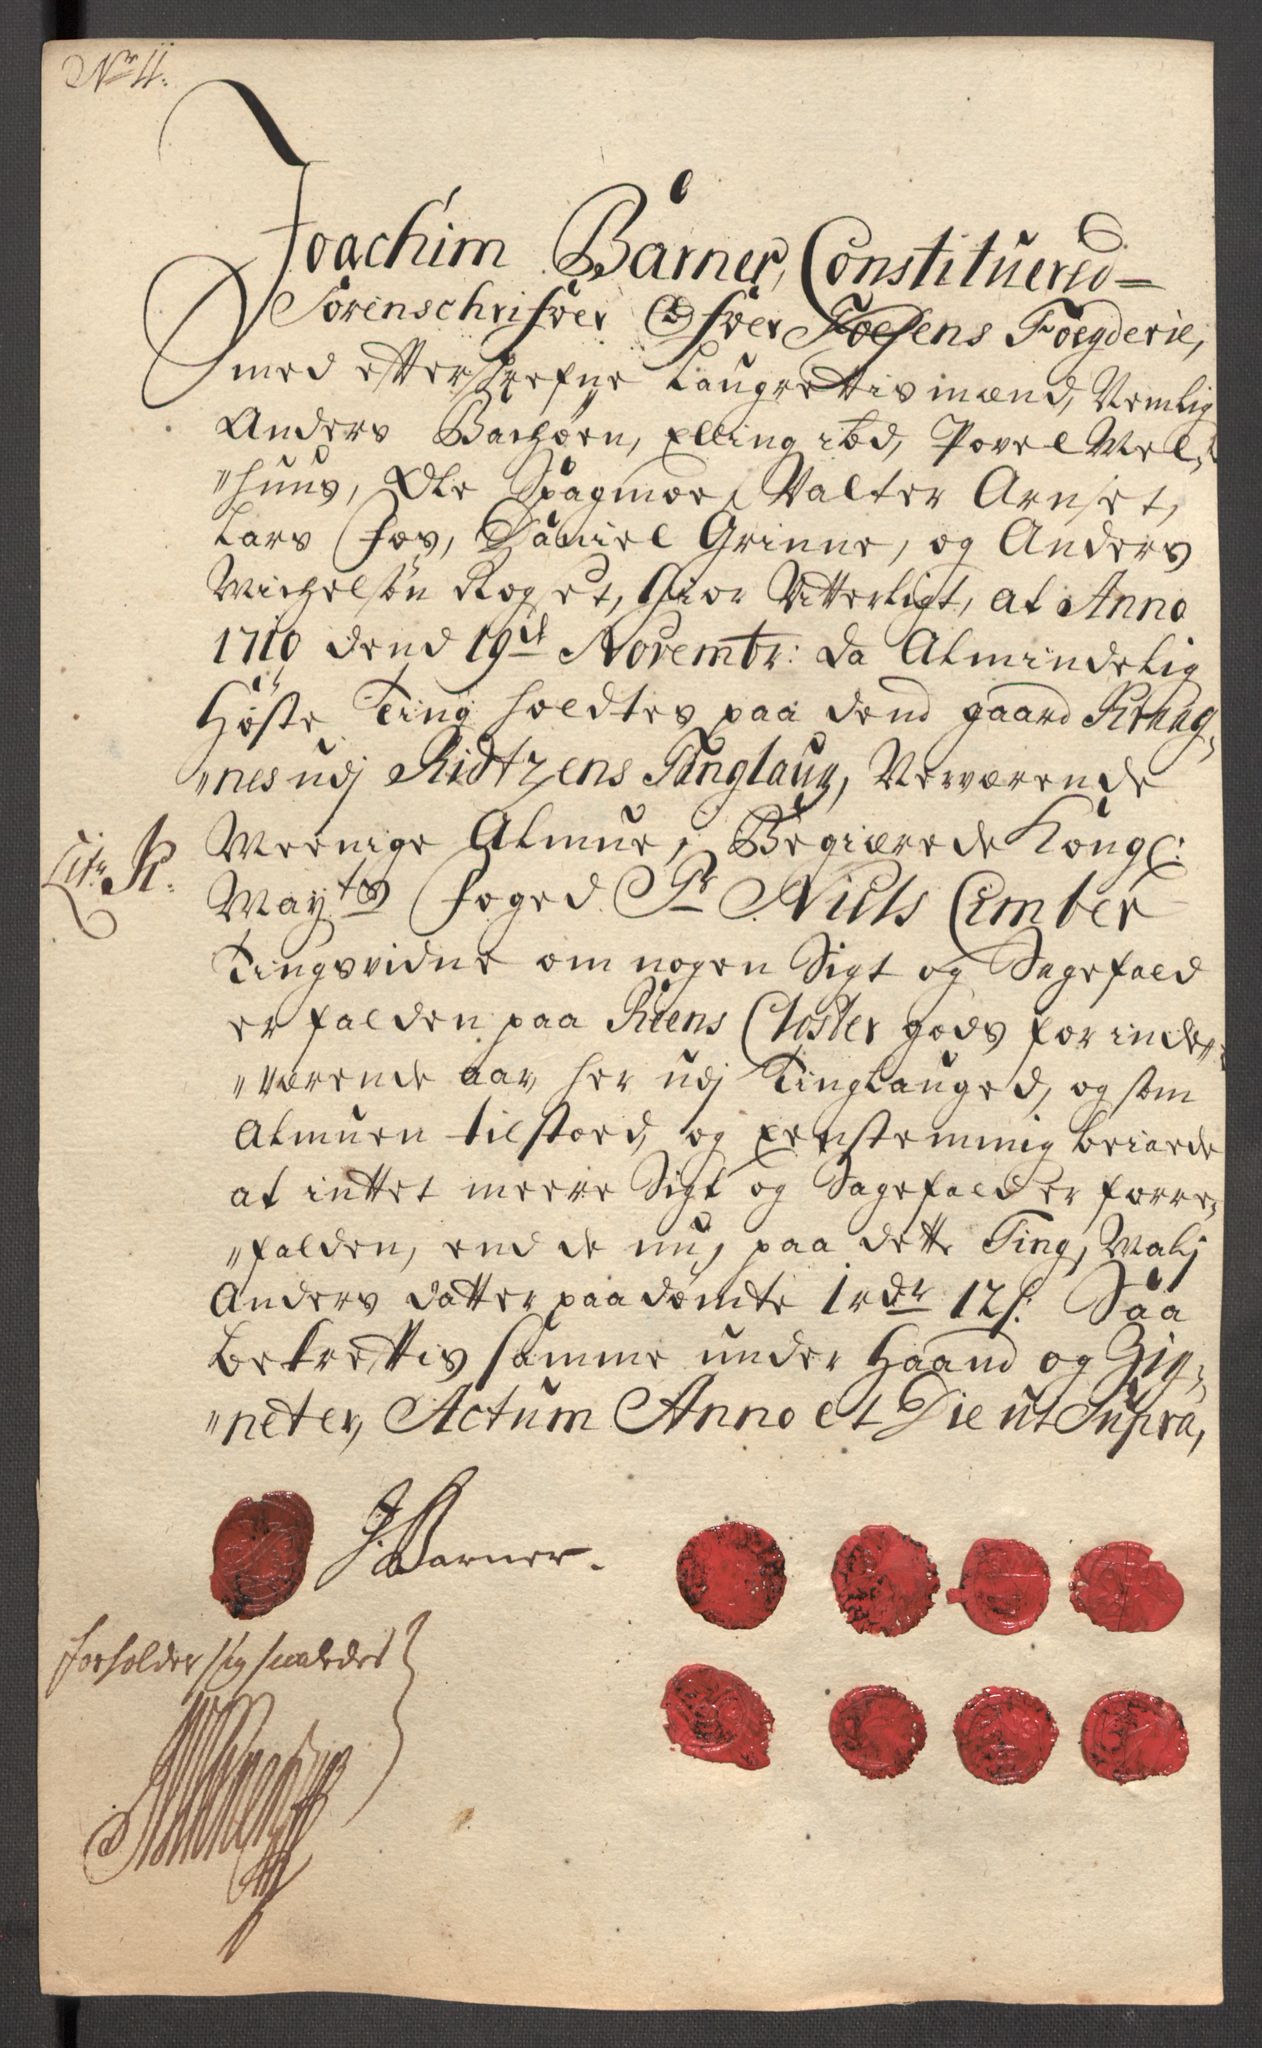 No 11.
Joachim Barner, Constituered
Sorenschrifver Ofver Foesens Foegderie,
med efterskrefne Laugrettis mænd, Nemlig
Anders Bachøen, Elling ibd, Povel Mel¬
"huus, Ole Skagmoe, Valter Arnset,
Lars Foss, Daniel Grinne, og Anders
Michelsøn Rogset, Giør Vitterligt, at Anno
1710 dend 19de Novembr: da Almindelig
Høste Ting holdtes paa dend gaard Kraag¬
"nes udj Ridtzens Tinglaug, Nerværende
Meenige Almue, Begiærede Kongl:
Litr K.
Mayts Foged Sr Niels Cimber
Tingsvidne om nogen Sigt og Sagefald
er falden paa Riens Closter gods for inde¬
"værende aar, her udj Tinglauged, og som
Almuen tilstoed, og Eenstemmig beiaede
at inttet meere Sigt og Sagefald er forre¬
"falden, end de nu, paa dette Ting, Malj
Anders datter paadømte 1 rdr 12 s: Saa
bekreftis samme under Haand og Zig¬
"neter, Actum Anno et Die ut Supra,
J. Barner.
forholder sig saaledes